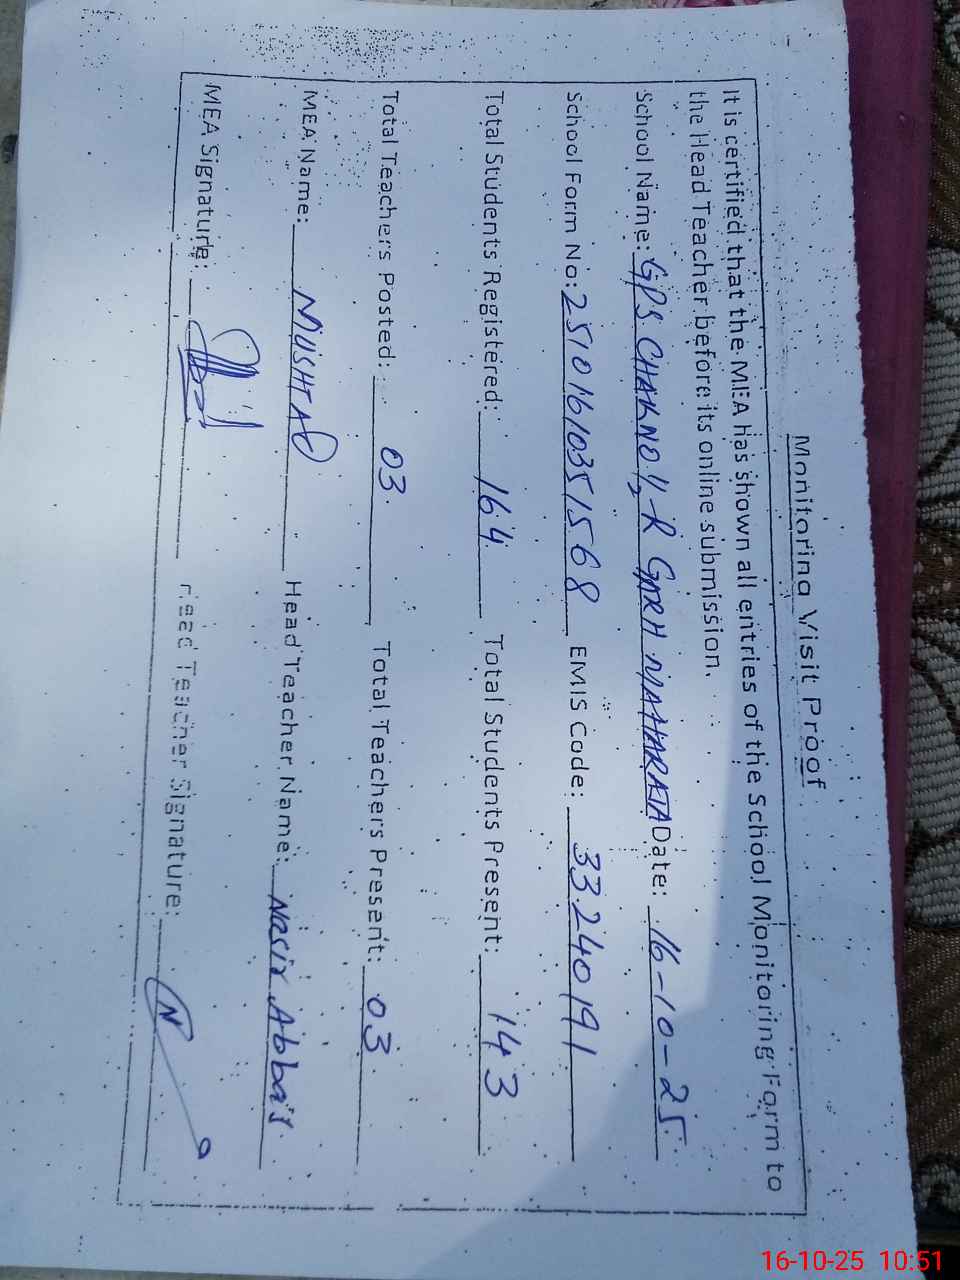 Monitoring Visit Proof
It is certified that the MEA has shown all entries of the School Monitoring Form to
the Head Teacher before its online submission.
School Name: GPS CHAK NO 1/2-R GARH MAHARAJA Date: 16-10-25
School Form No: 25101610351568 EMIS Code: 33240191
Total Students Registered: 164 Total Students Present: 143
Total Teachers Posted: 03 Total Teachers Present: 03
MEA Name: MUSHTAQ Head Teacher Name: Nasir Abbas
MEA Signature: Head Teacher Signature:
16-10-25 10:51